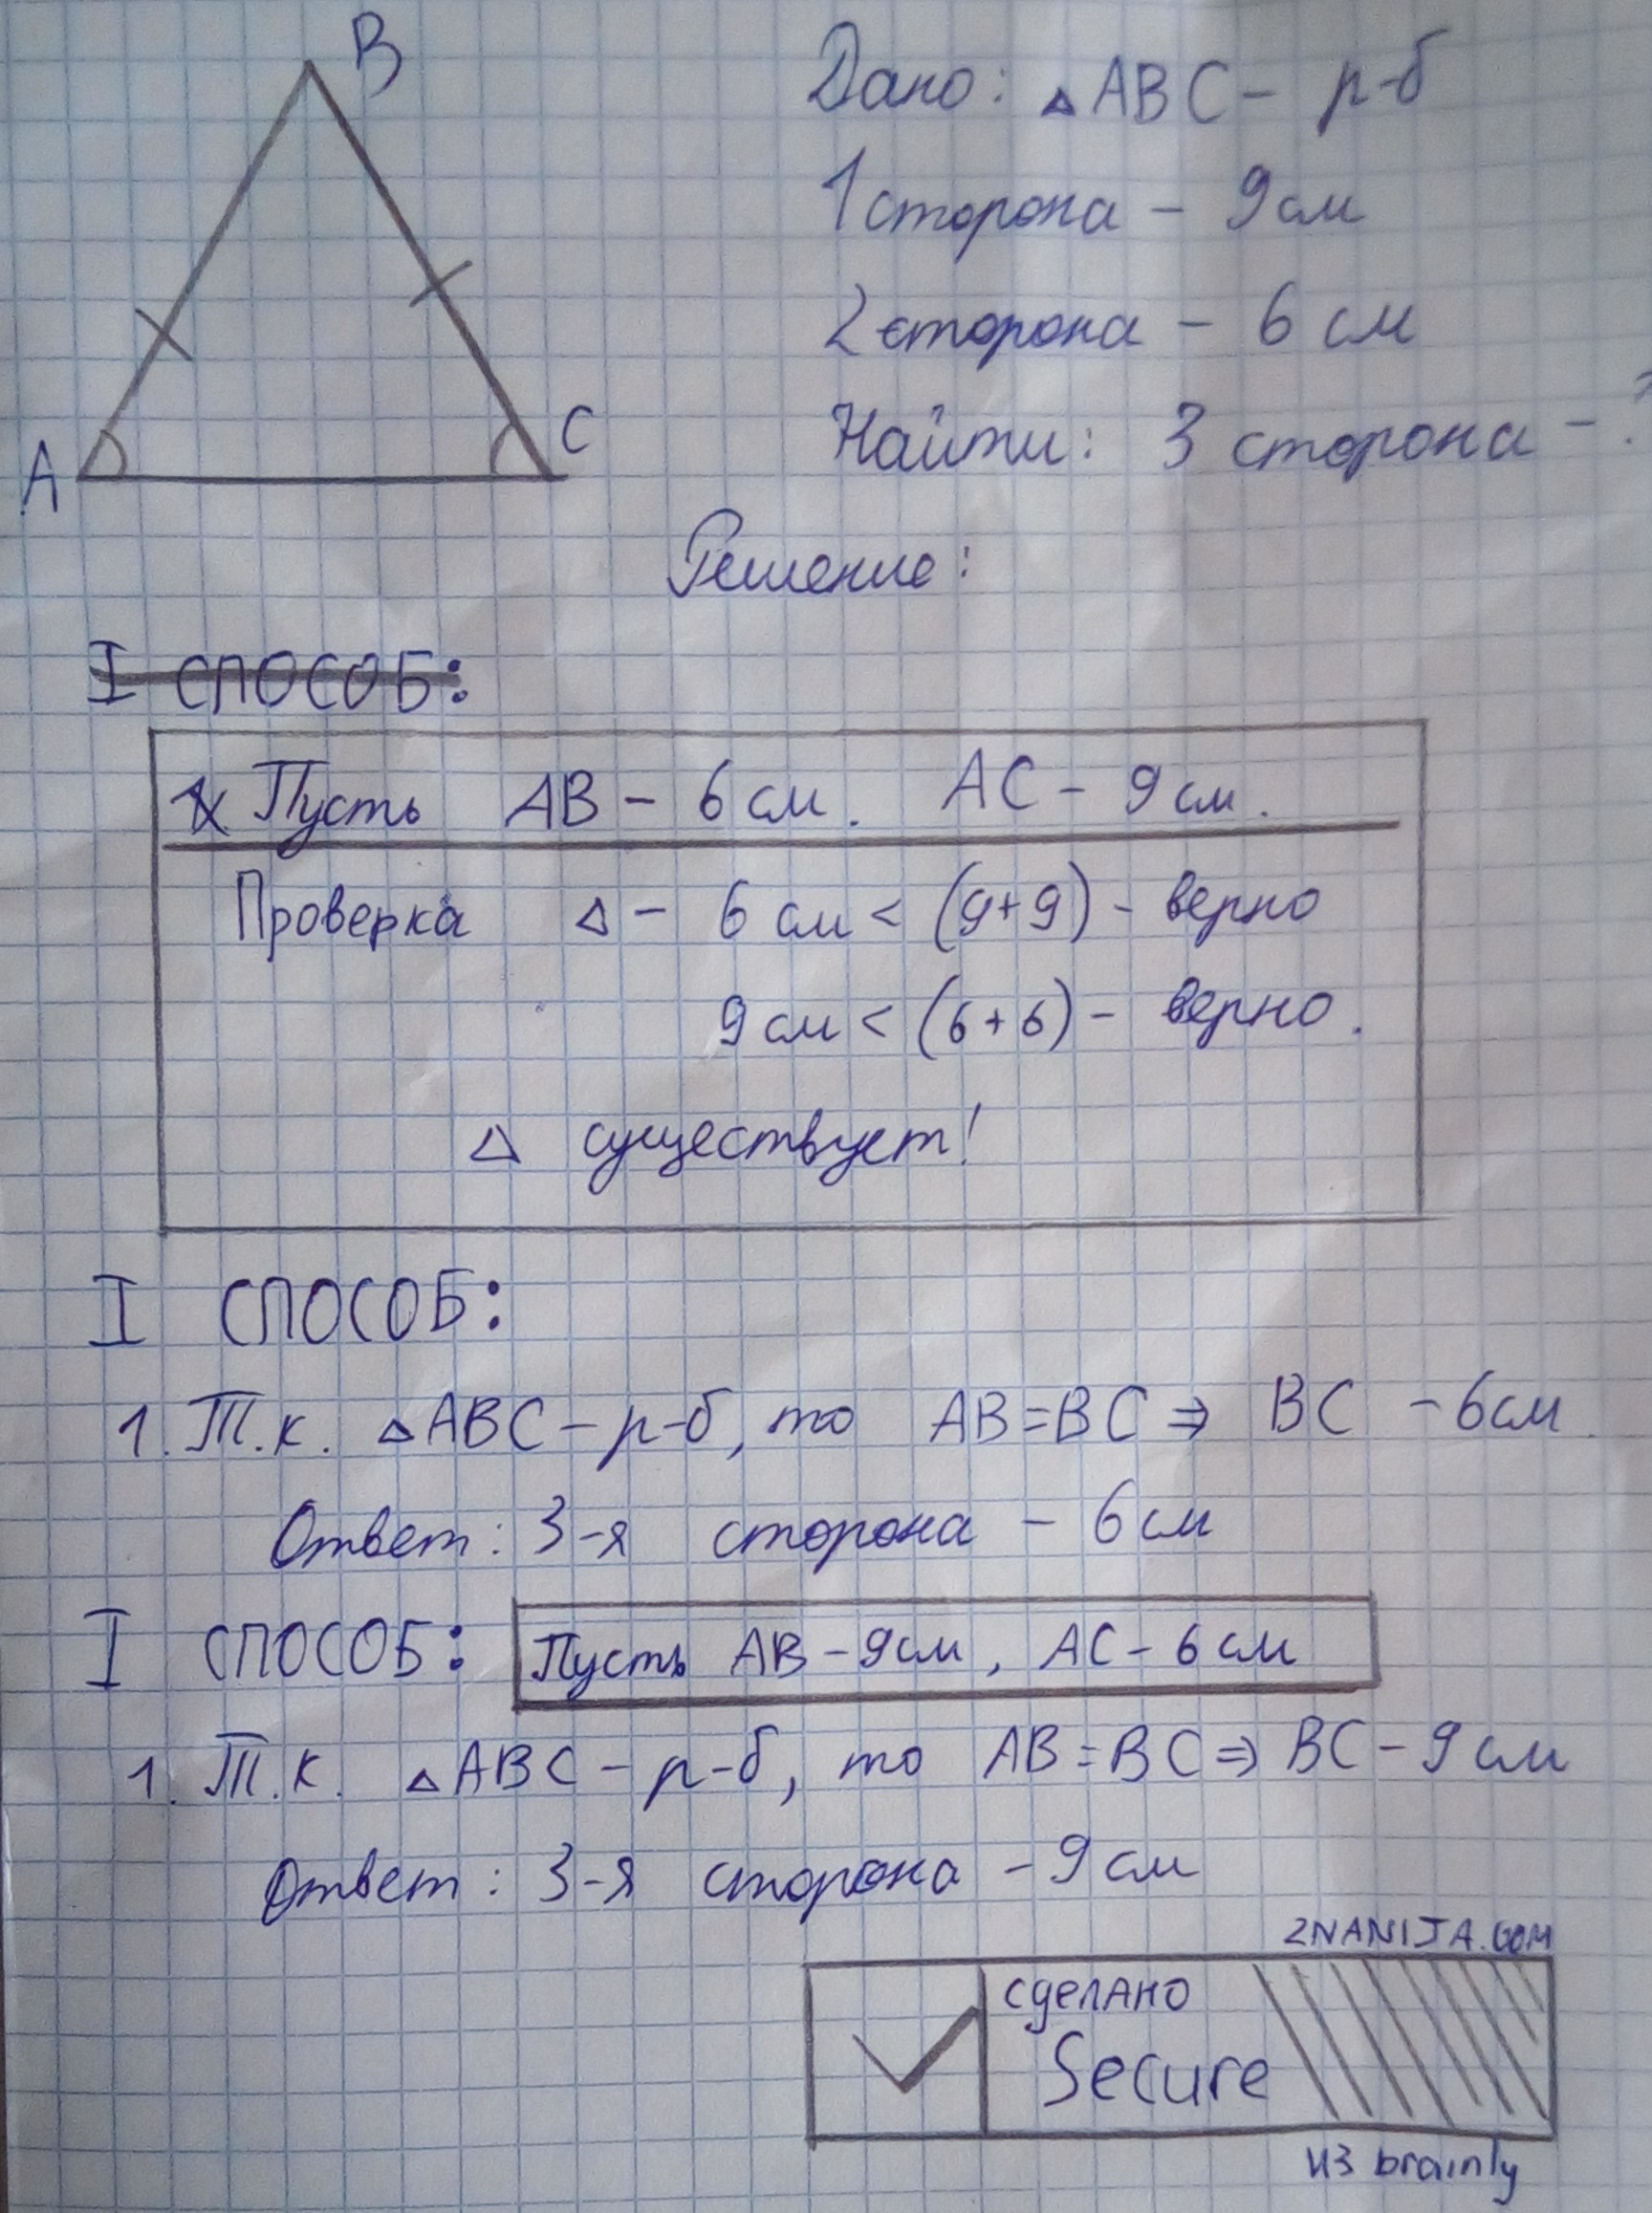 B
A
C
Дано: △ABC - р-б
1 сторона - 9 см
2 сторона - 6 см
Найти: 3 сторона - ?
Решение:
I СПОСОБ:
Пусть AB - 6 см. AC - 9 см.
Проверка △ - 6 см < (9+9) - верно
9 см < (6+6) - верно.
△ существует!
I СПОСОБ:
1. Т.к. △ABC - р-б, то AB=BC ⇒ BC - 6 см.
Ответ: 3-я сторона - 6 см
I СПОСОБ: Пусть AB - 9 см, AC - 6 см
1. Т.к. △ABC - р-б, то AB=BC ⇒ BC - 9 см
Ответ: 3-я сторона - 9 см
ZNANIJA.COM
сделано
Secure
из brainly